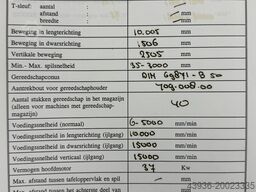 T-sleuf: aantal — mm
afstand — mm
breedte — mm
Beweging in lengterichting 10.005 mm
Beweging in dwarsrichting 1506 mm
Vertikale beweging 2505 mm
Min.- Max. spilsnelheid 35-3000 mm
Gereedschapconus DIN 69871-B 50
Aantrekbout voor gereedschaphouder 709.008.00
Aantal stukken gereedschap in het magazijn
(alleen voor machines met gereedschap-
magazijn) 40
Voedingssnelheid (normaal) 6-5000 mm/min
Voedingssnelheid in lengterichting (ijlgang) 10000 mm/min
Voedingssnelheid in dwarsrichting (ijlgang) 15000 mm/min
Voedingssnelheid verticaal (ijlgang) 15000 mm/min
Vermogen hoofdmotor 37 Kw
Max. afstand tussen tafeloppervlak en spil — mm
Max. afstand tussen het achterste deel van
43936-20023335